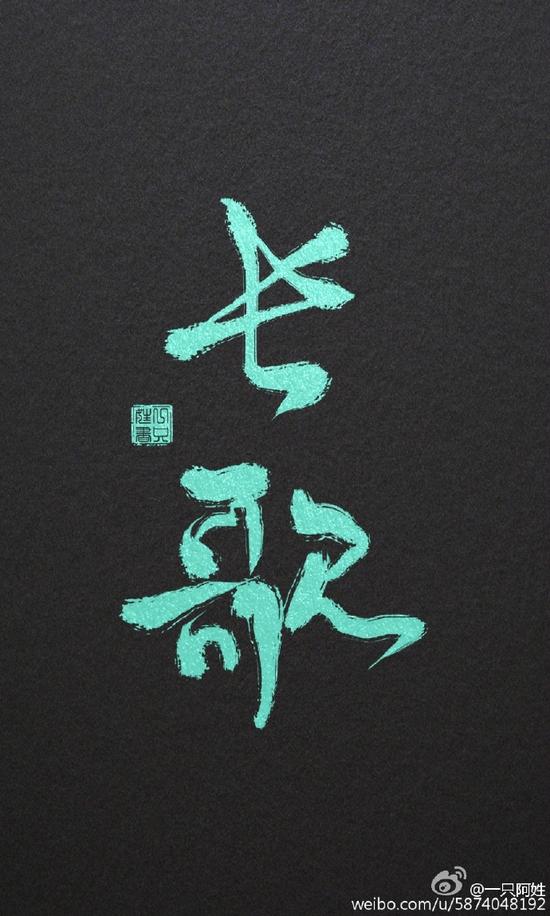 长
歌
@一只阿姓
weibo.com/u/5874048192